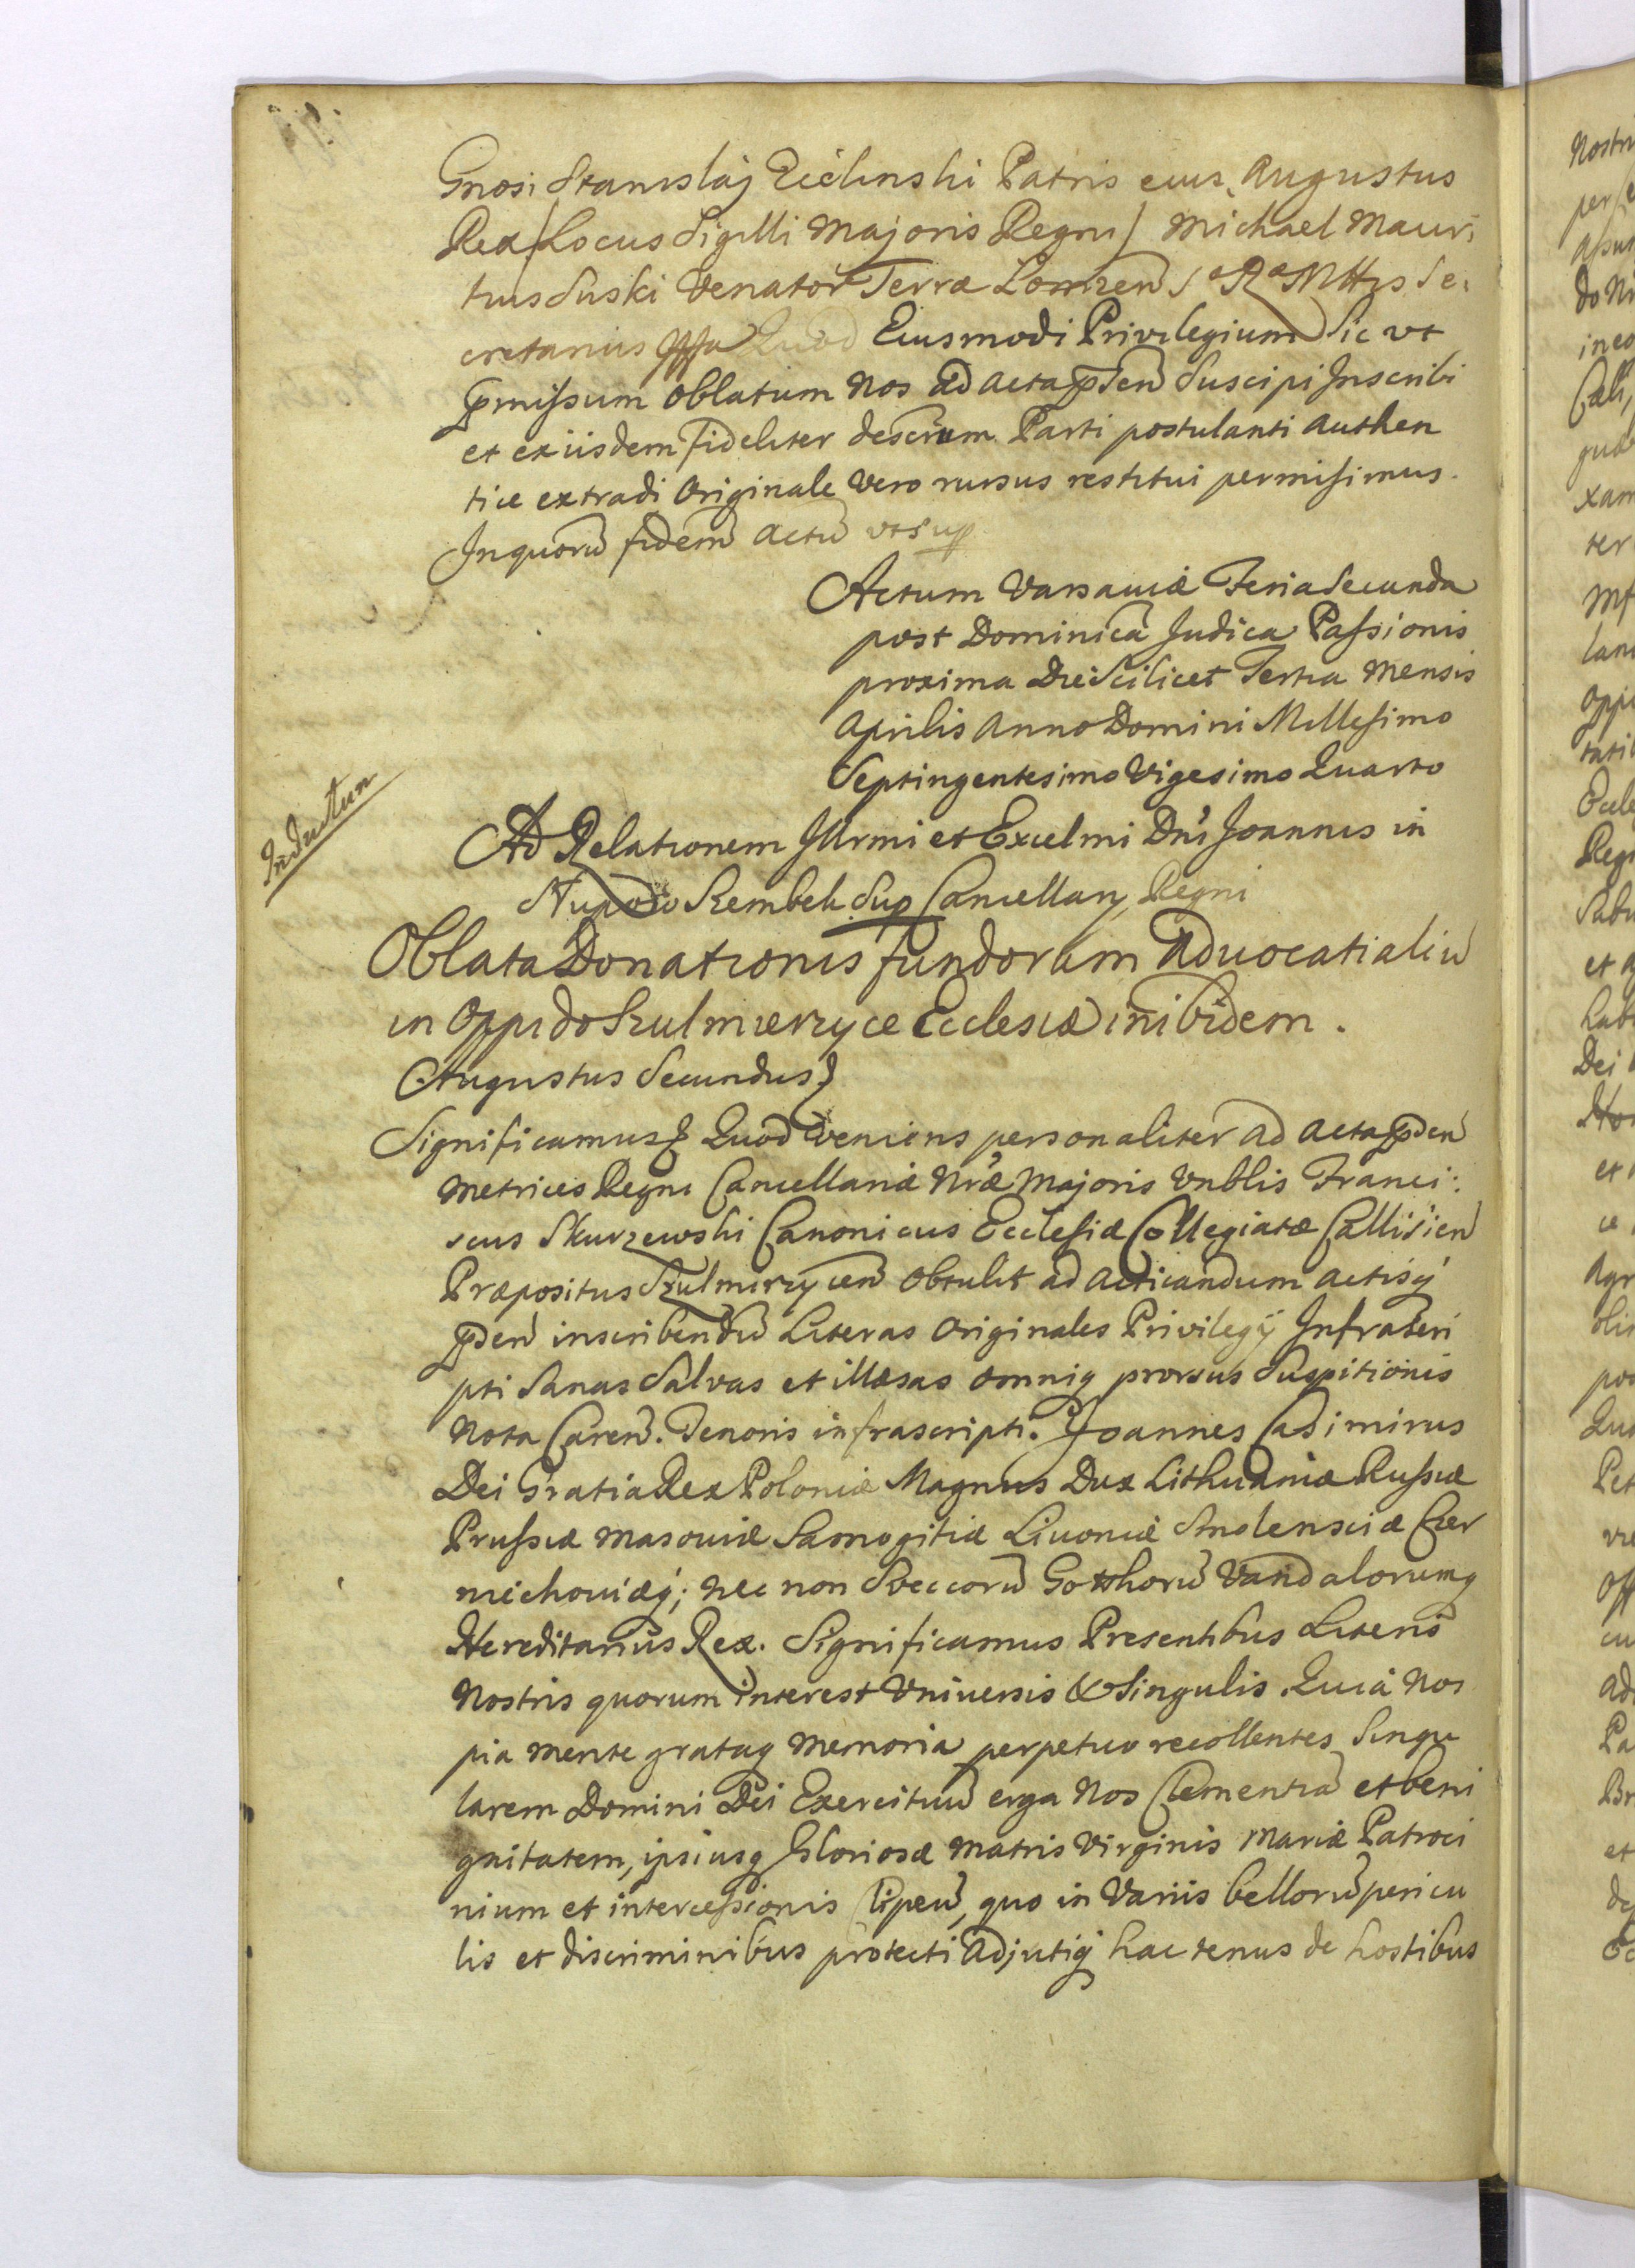 Gnosi Stanislaj Zielinski Patris eius, Augustus
Rex /Locus Sigilli Majoris Regni/ Michael Mauri
tius Suski Venator Terræ Lomzen S. R. Mttis Se:
cretarius Quod Eiusmodi Privilegium Sic vt
pmissum Oblatum Nos ad Acta pnten Suscipi Inscribi
et exiisdem fideliter descrum Parti postulanti Authen
tice extradi Originale vero rursus restitui permisimus.
Inquorũ fidem actũ vt sup
Actum Varsaviæ Feria Secunda
post Dominicã Judica Passionis
proxima Die Scilicet Tertia Mensis
Aprilis Anno Domini Millesimo
Septingentesimo Vigesimo Quarto
Inductum
Ad Relationem Illrmi et Excelmi Dni Joannis in
Słupow Szembek Sup Cancellarij Regni
Oblata Donationis fundorum Advocatialiũ
in Oppido Szulmierzyce Ecclesiæ inibidem.
Augustus Secundus
Significamus Quod veniens personaliter ad Acta pnden
Metrices Regni Cancellariæ Nræ Majoris Vnblis Franci:
scus Skurzewski Canonicus Ecclesiæ Collegiatæ Callisien
Præpositus Szulmirzycen Obtulit ad Acticandum Actisq
pnden inscribendũ Literas Originales Privilegij Infrascri
pti Sanas Salvas et illæsas omniq prorsus Suspitionis
Nota Caren. Tenoris infrascripti. Joannes Casimirus
Dei Gratia Rex Poloniæ Magnus Dux Lithuaniæ Russiæ
Prussiæ Masoviæ Samogitiæ Livoniæ Smolensciæ Czer
niechoviæq; Nec non Svecorũ Gotthorũ Vandalorumq
Hereditarius Rex. Significamus Presentibus Literis
Nostris quorum interest Vniversis & Singulis. Quia Nos
pia mente grataq Memoria perpetuo recollentes Singu
larem Domini Dei Exercituũ erga Nos Clementiã et beni
gnitatem, ipsiusq Gloriosæ Matris Virginis Mariæ Patroci
nium et intercessionis Clipeũ, quo in Variis bellorũ pericu
lis et discriminibus protecti Adjutiq hactenus de hostibus